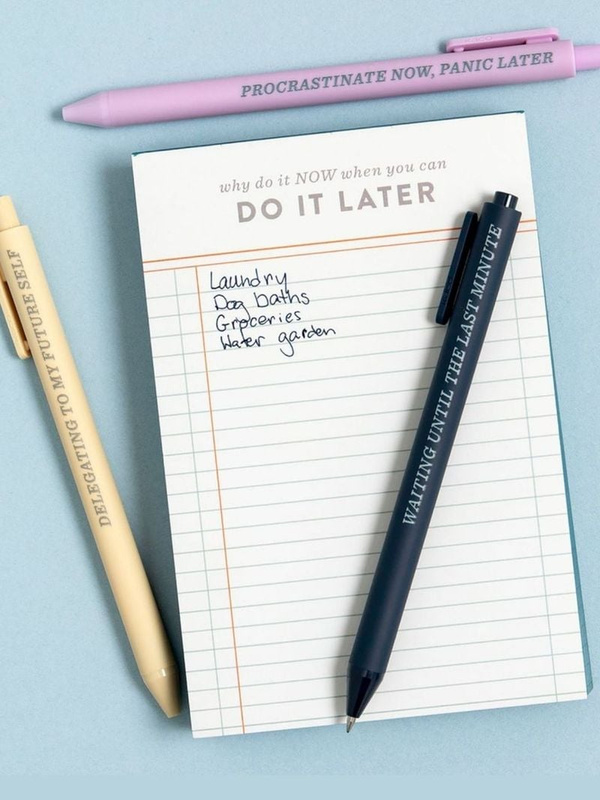 PROCRASTINATE NOW, PANIC LATER
why do it NOW when you can
DO IT LATER
Laundry
Dog baths
Groceries
Water garden
DELEGATING TO MY FUTURE SELF
WAITING UNTIL THE LAST MINUTE